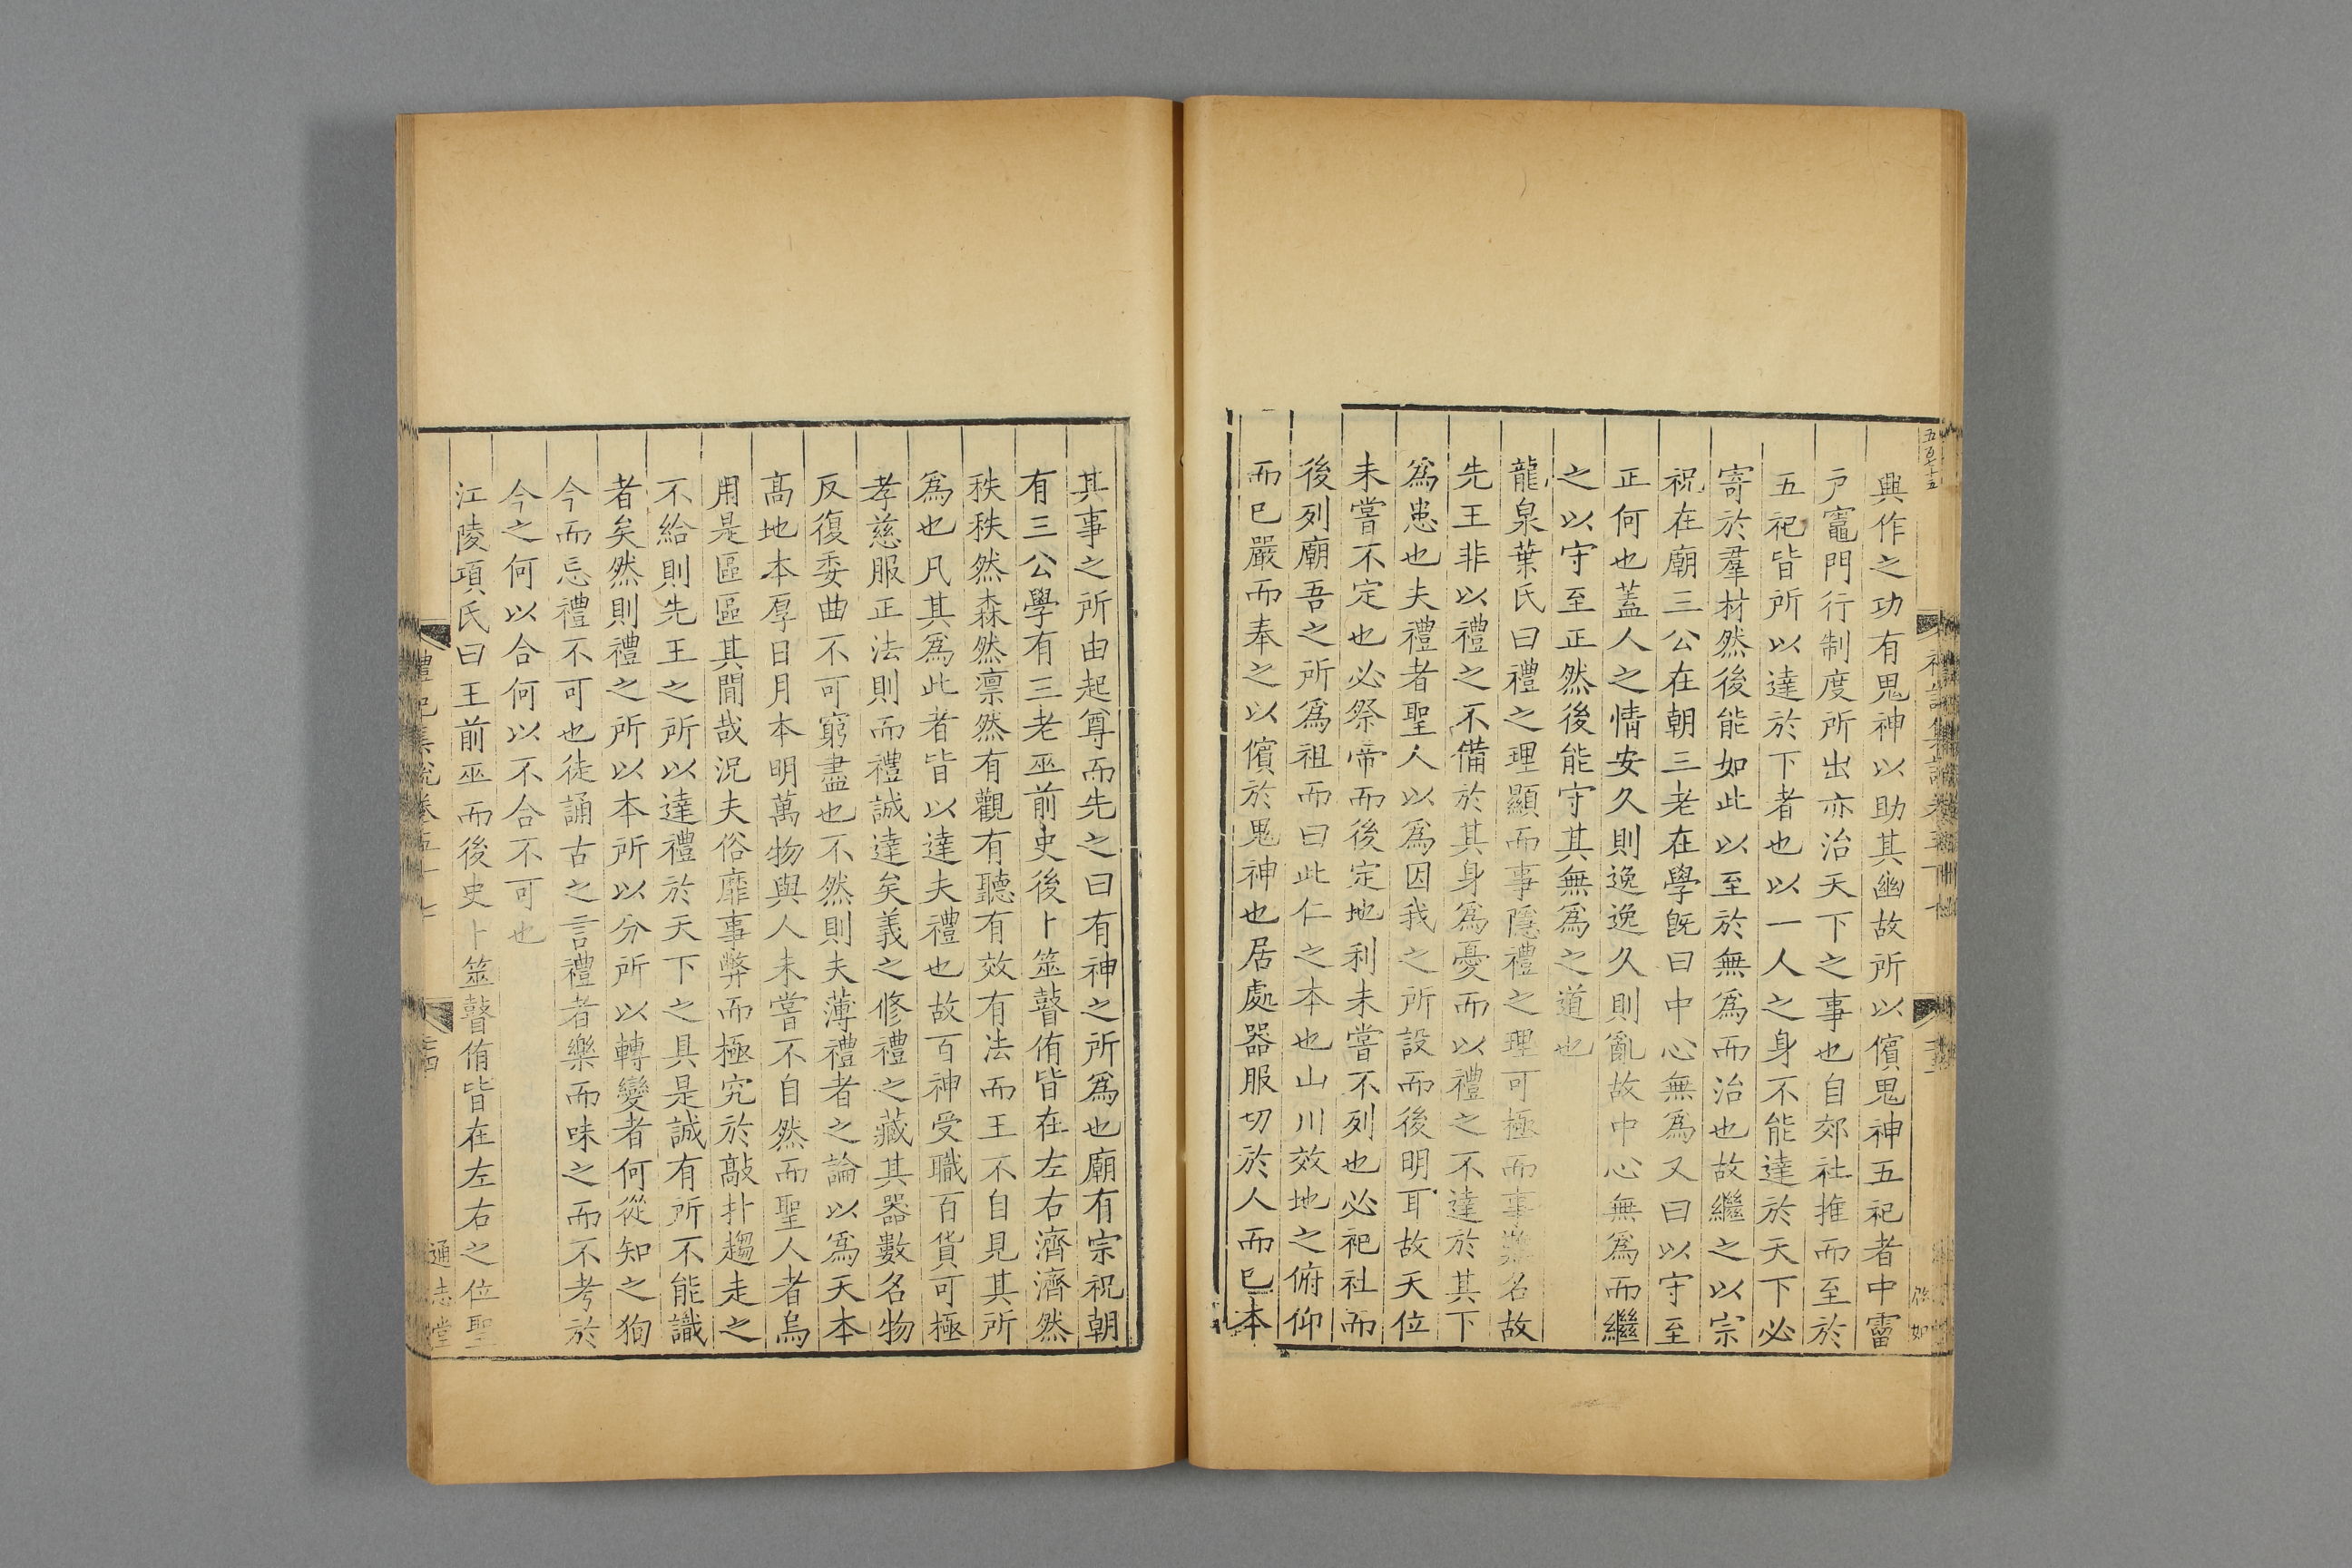 五百七十五
興作之功有鬼神以助其幽故所以儐鬼神五祀者中霤
戸竈門行制度所出亦治天下之事也自郊社推而至於
五祀皆所以達於下者也以一人之身不能達於天下必
寄於羣材然後能如此以至於無爲而治也故繼之以宗
祝在廟三公在朝三老在學旣曰中心無爲又曰以守至
正何也蓋人之情安久則逸逸久則亂故中心無爲而繼
之以守至正然後能守其無爲之道也
龍泉葉氏曰禮之理顯而事隱禮之理可極而事業名故
先王非以禮之不備於其身爲憂而以禮之不達於其下
爲患也夫禮者聖人以爲因我之所設而後明耳故天位
未嘗不定也必祭帝而後定地利未嘗不列也必祀社而
後列廟吾之所爲祖而曰此仁之本也山川效地之俯仰
而已嚴而奉之以儐於鬼神也居處器服切於人而已本
其事之所由起尊而先之曰有神之所爲也廟有宗祝朝
有三公學有三老巫前史後卜筮瞽侑皆在左右濟濟然
秩秩然森然凛然有觀有聽有效有法而王不自見其所
爲也凡其爲此者皆以達夫禮也故百神受職百貨可極
孝慈服正法則而禮誠達矣義之修禮之藏其器數名物
反復委曲不可窮盡也不然則夫薄禮者之論以爲天本
髙地本厚日月本明萬物與人未嘗不自然而聖人者烏
用是區區其閒哉況夫俗靡事弊而極究於敲扑趨走之
不給則先王之所以達禮於天下之具是誠有所不能識
者矣然則禮之所以本所以分所以轉變者何從知之狥
今而忘禮不可也徒誦古之言禮者樂而味之而不考於
今之何以合何以不合不可也
江陵項氏曰王前巫而後史卜筮瞽侑皆在左右之位聖
禮記集說卷五十七
通志堂